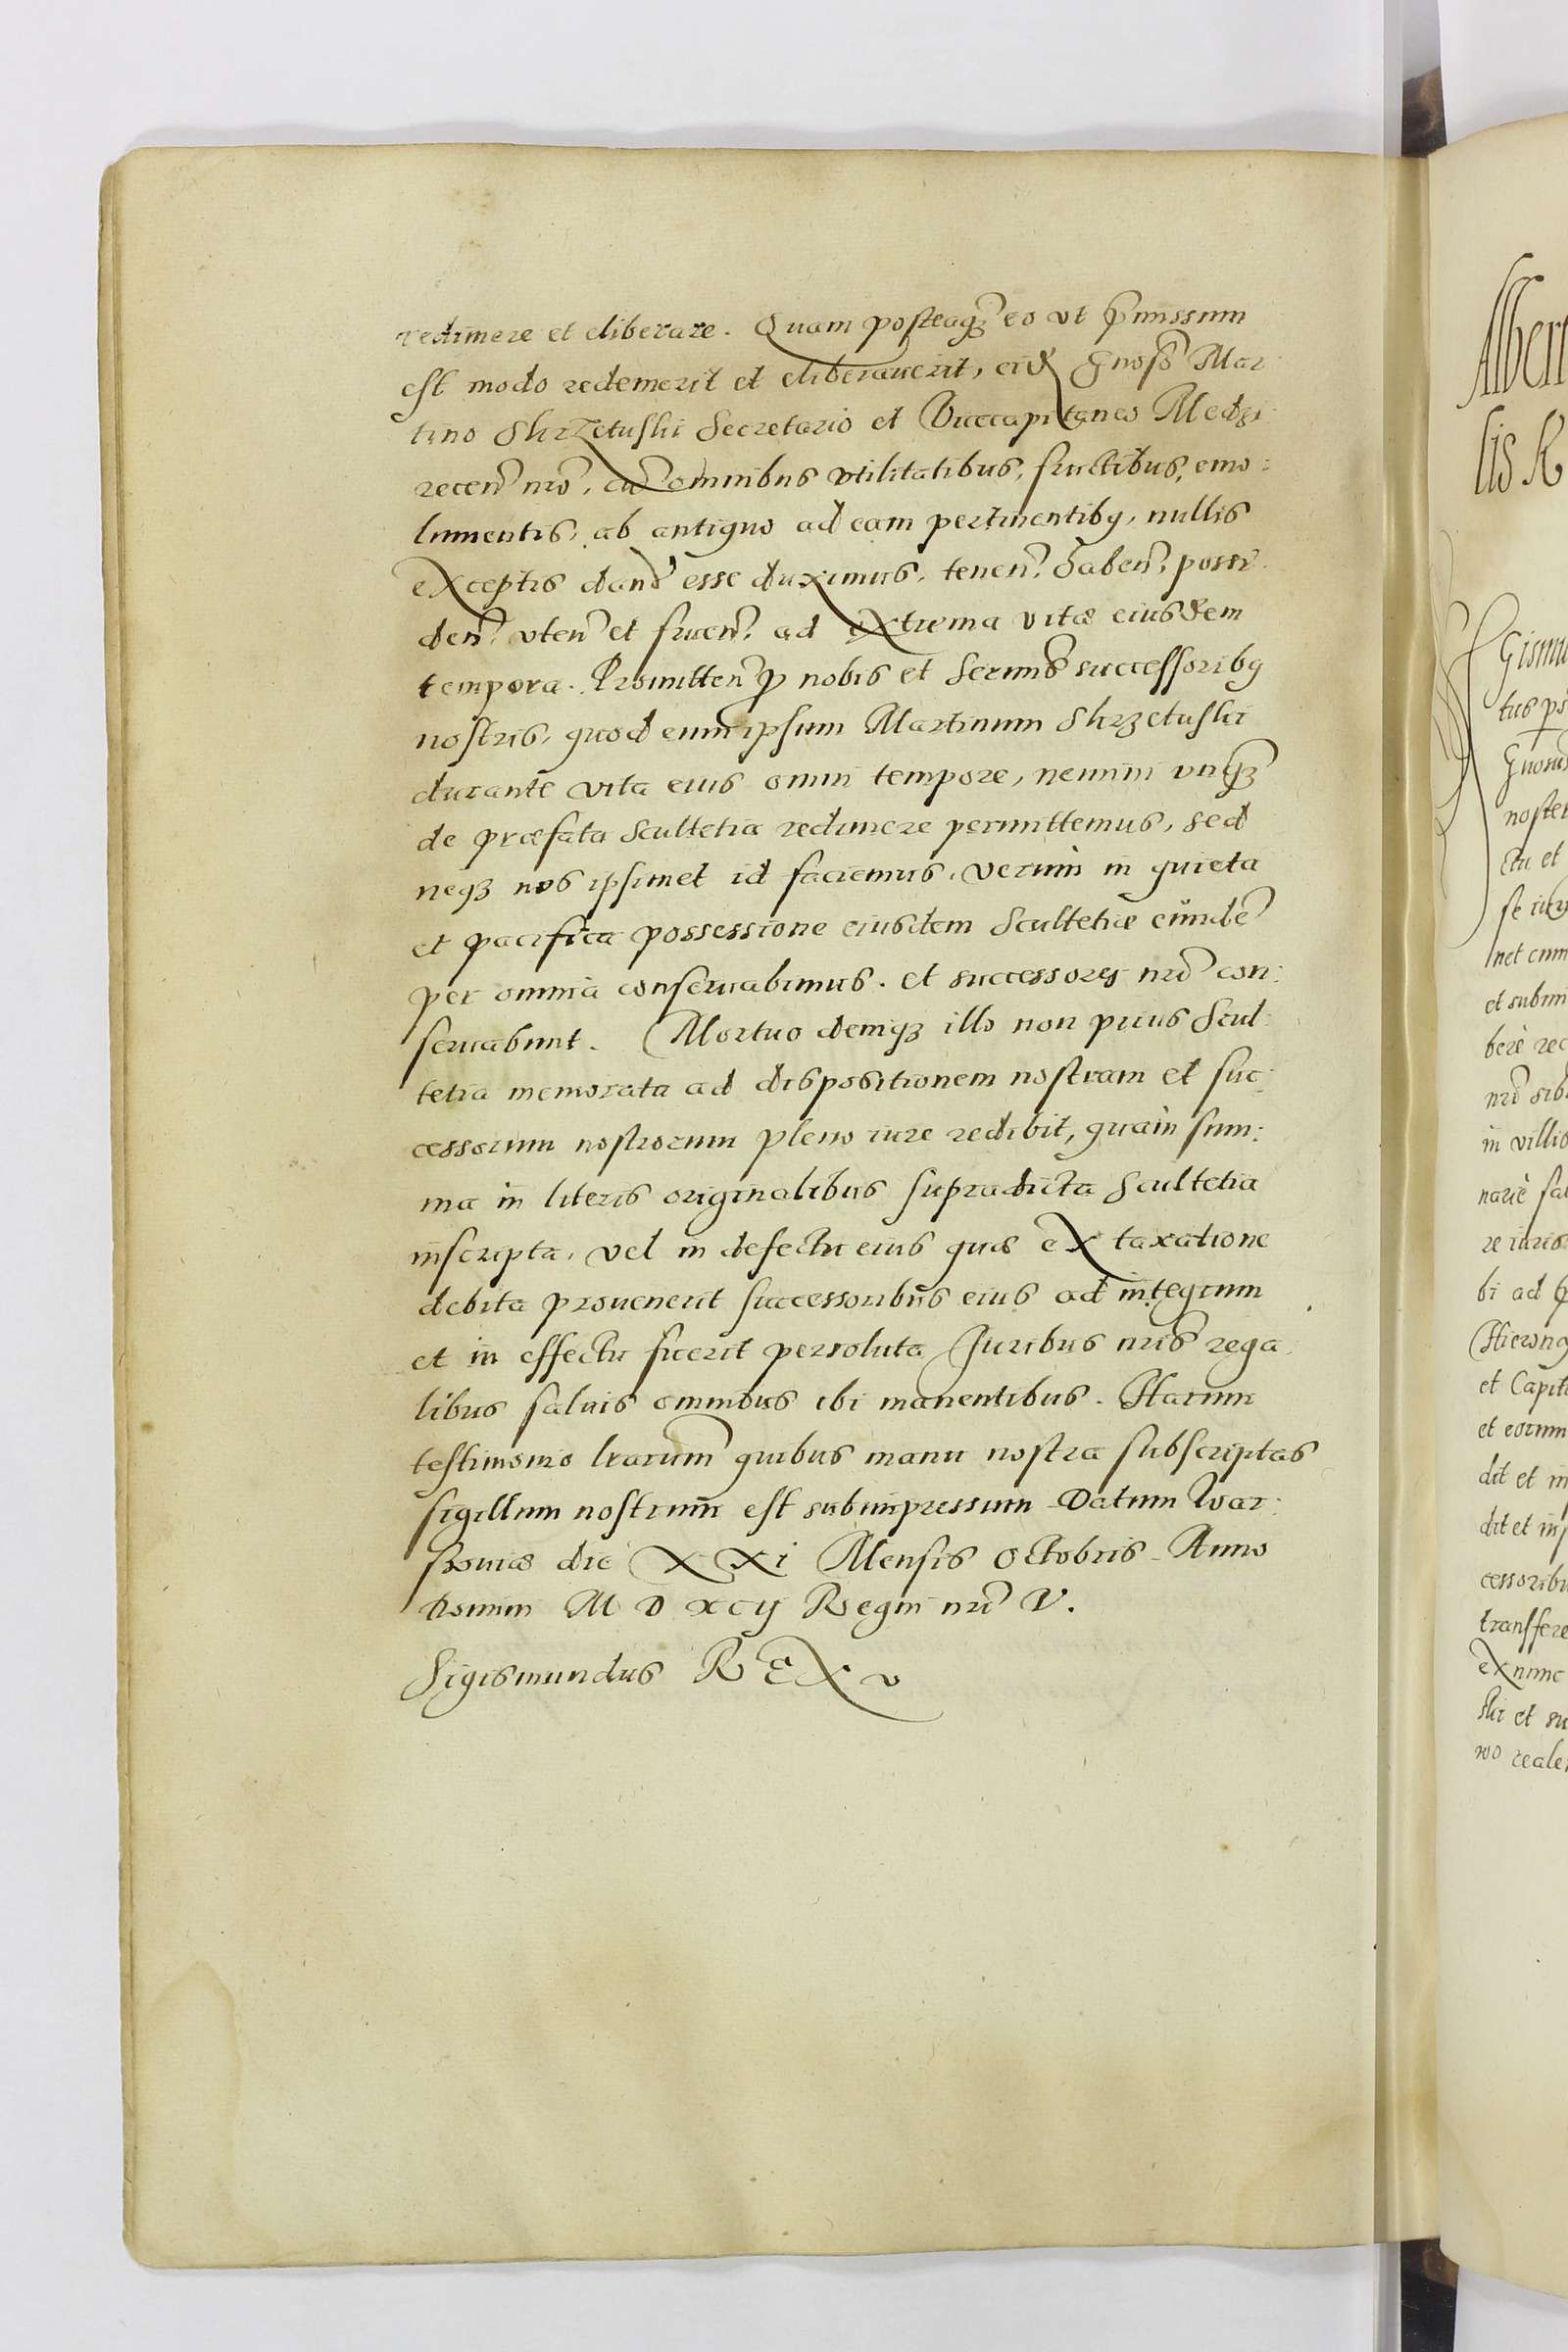 redimere et eliberare. Quam posteaqz eo vt pmissum
est modo redemerit et eliberauerit, eid Gnoso Mar
tino Skrzetuski Secretario et Vicecapitaneo Medzi
recen nro, cu omnibus vtilitatibus, fructibus, emo:
lumentis, ab antiquo ad eam pertinentibq, nullis
exceptis dand esse duximus, tenen, haben, possi
den, vten et fruen, ad extrema vitæ eiusdem
tempora. Promitten p nobis et Sermis successoribq
nostris, quod eum ipsum Martinum Skrzetuski
durante vita eius omni tempore, nemini vnqz
de præfata Scultetia redimere permittemus, sed
neqz nos ipsimet id faciemus, verum in quieta
et pacifica possessione eiusdem Scultetiæ eunde
per omnia conseruabimus. et successores nri con:
seruabunt. Mortuo demqz illo non prius Scul:
tetia memorata ad dispositionem nostram et suc:
cessorum nostrorum pleno iure redibit, quam sum:
ma in literis originalibus supradicta Scultetia
inscripta, vel in defectu eius quæ ex taxatione
debita prouenerit successoribus eius ad integrum
et in effectu fuerit persoluta Juribus nris rega
libus saluis omnibus ibi manentibus. Harum
testimonio lrarum quibus manu nostra subscriptas
sigillum nostrum est subimpressum Datum War:
souiæ die XXi Mensis Octobris Anno
Domini M D xcij Regni nri V.
Sigismundus REX
Albert
lis K
Gismu
tus ps
Gnosus
noster
ctu et
se iu
net cum
et subm
bere rec
nri sib
in villis
narie sa
re iuris
bi ad p
Hierony
et Capit
et eorum
dit et in
dit et ins
cessoribu
transfere
ex nunc
ski et su
wo reale